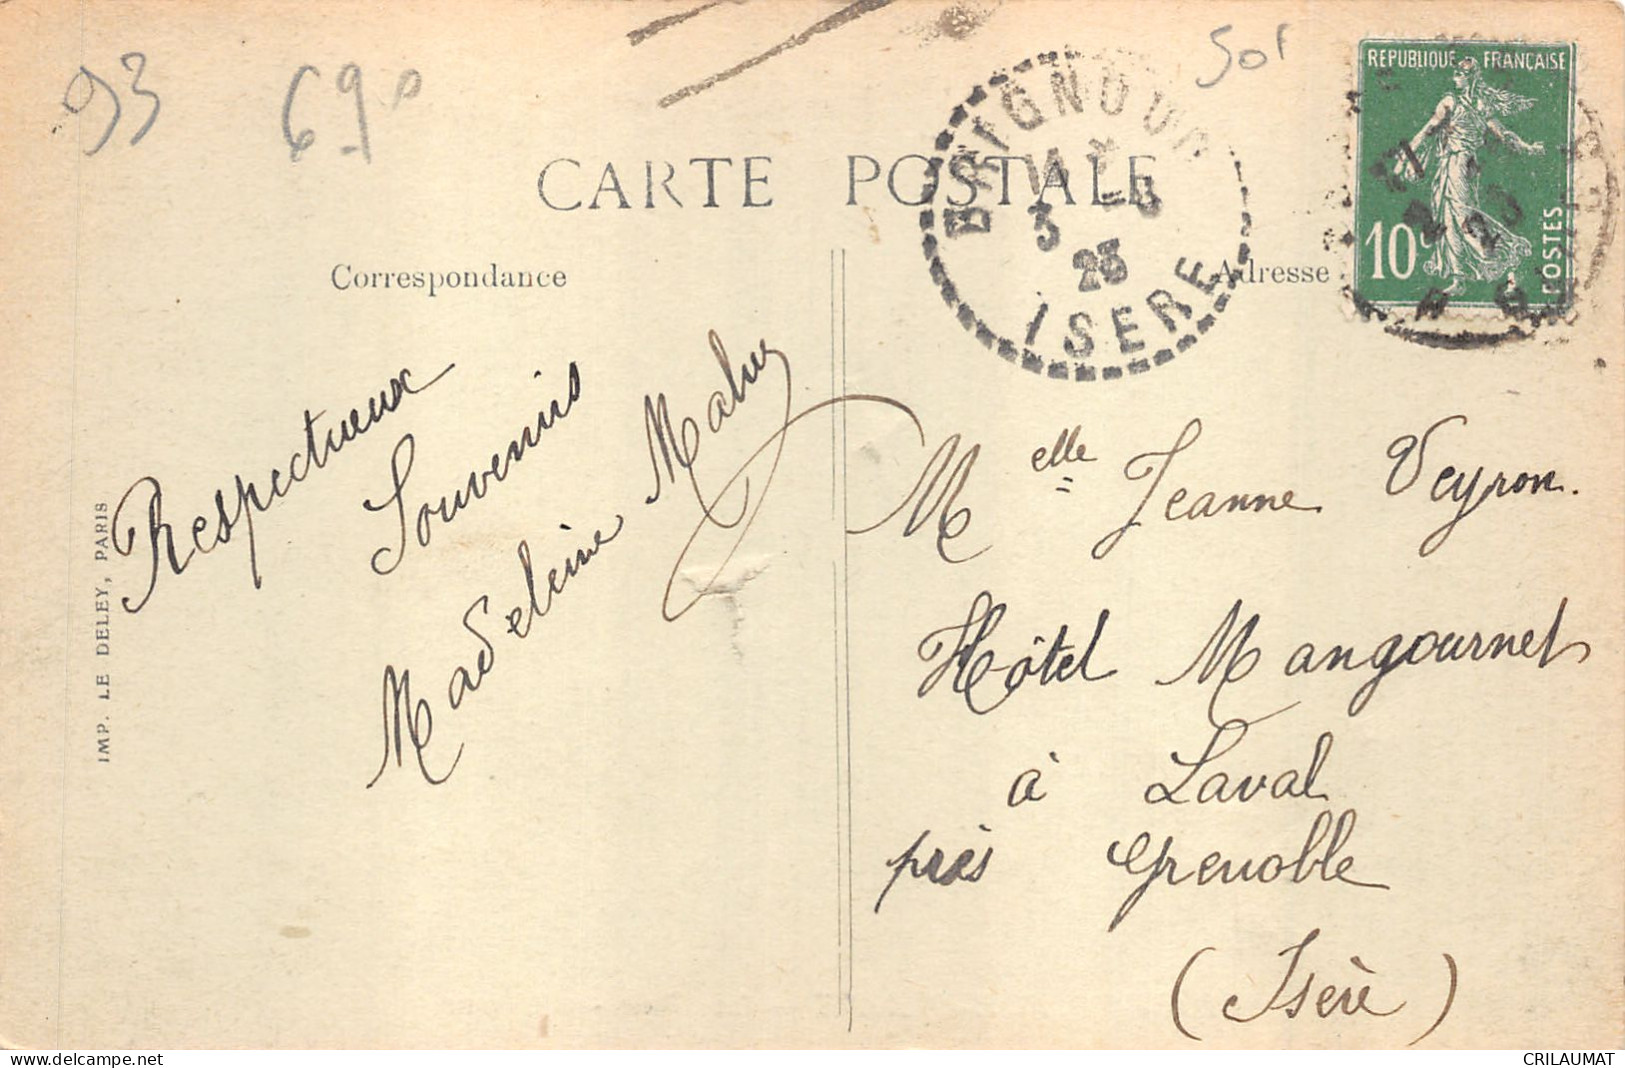 93
69
50f
RÉPUBLIQUE FRANÇAISE
10c
POSTES
BRIGNOUD
3 -8
23
ISERE
CARTE POSTALE
Correspondance
Adresse
Respectueux
Souvenirs
Madeleine
IMP. LE DELEY, PARIS
Melle Jeanne Veyron.
Hôtel Mangournet
à Laval
près Grenoble
(Isère)
CRILAUMAT